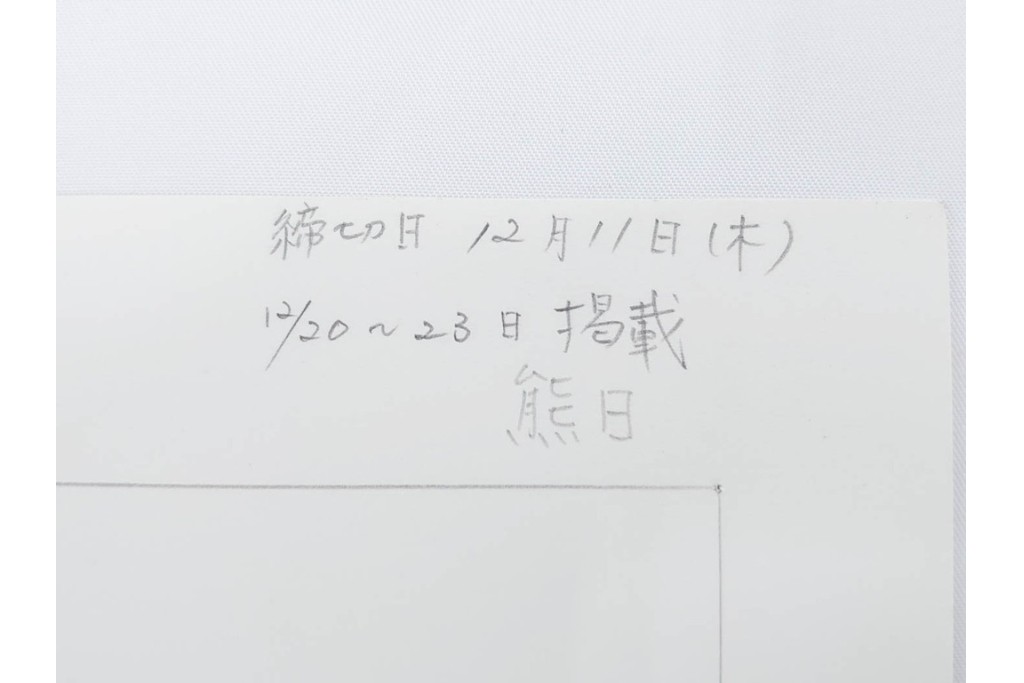 締切日 12月11日(木)
12/20~23日 掲載
熊日